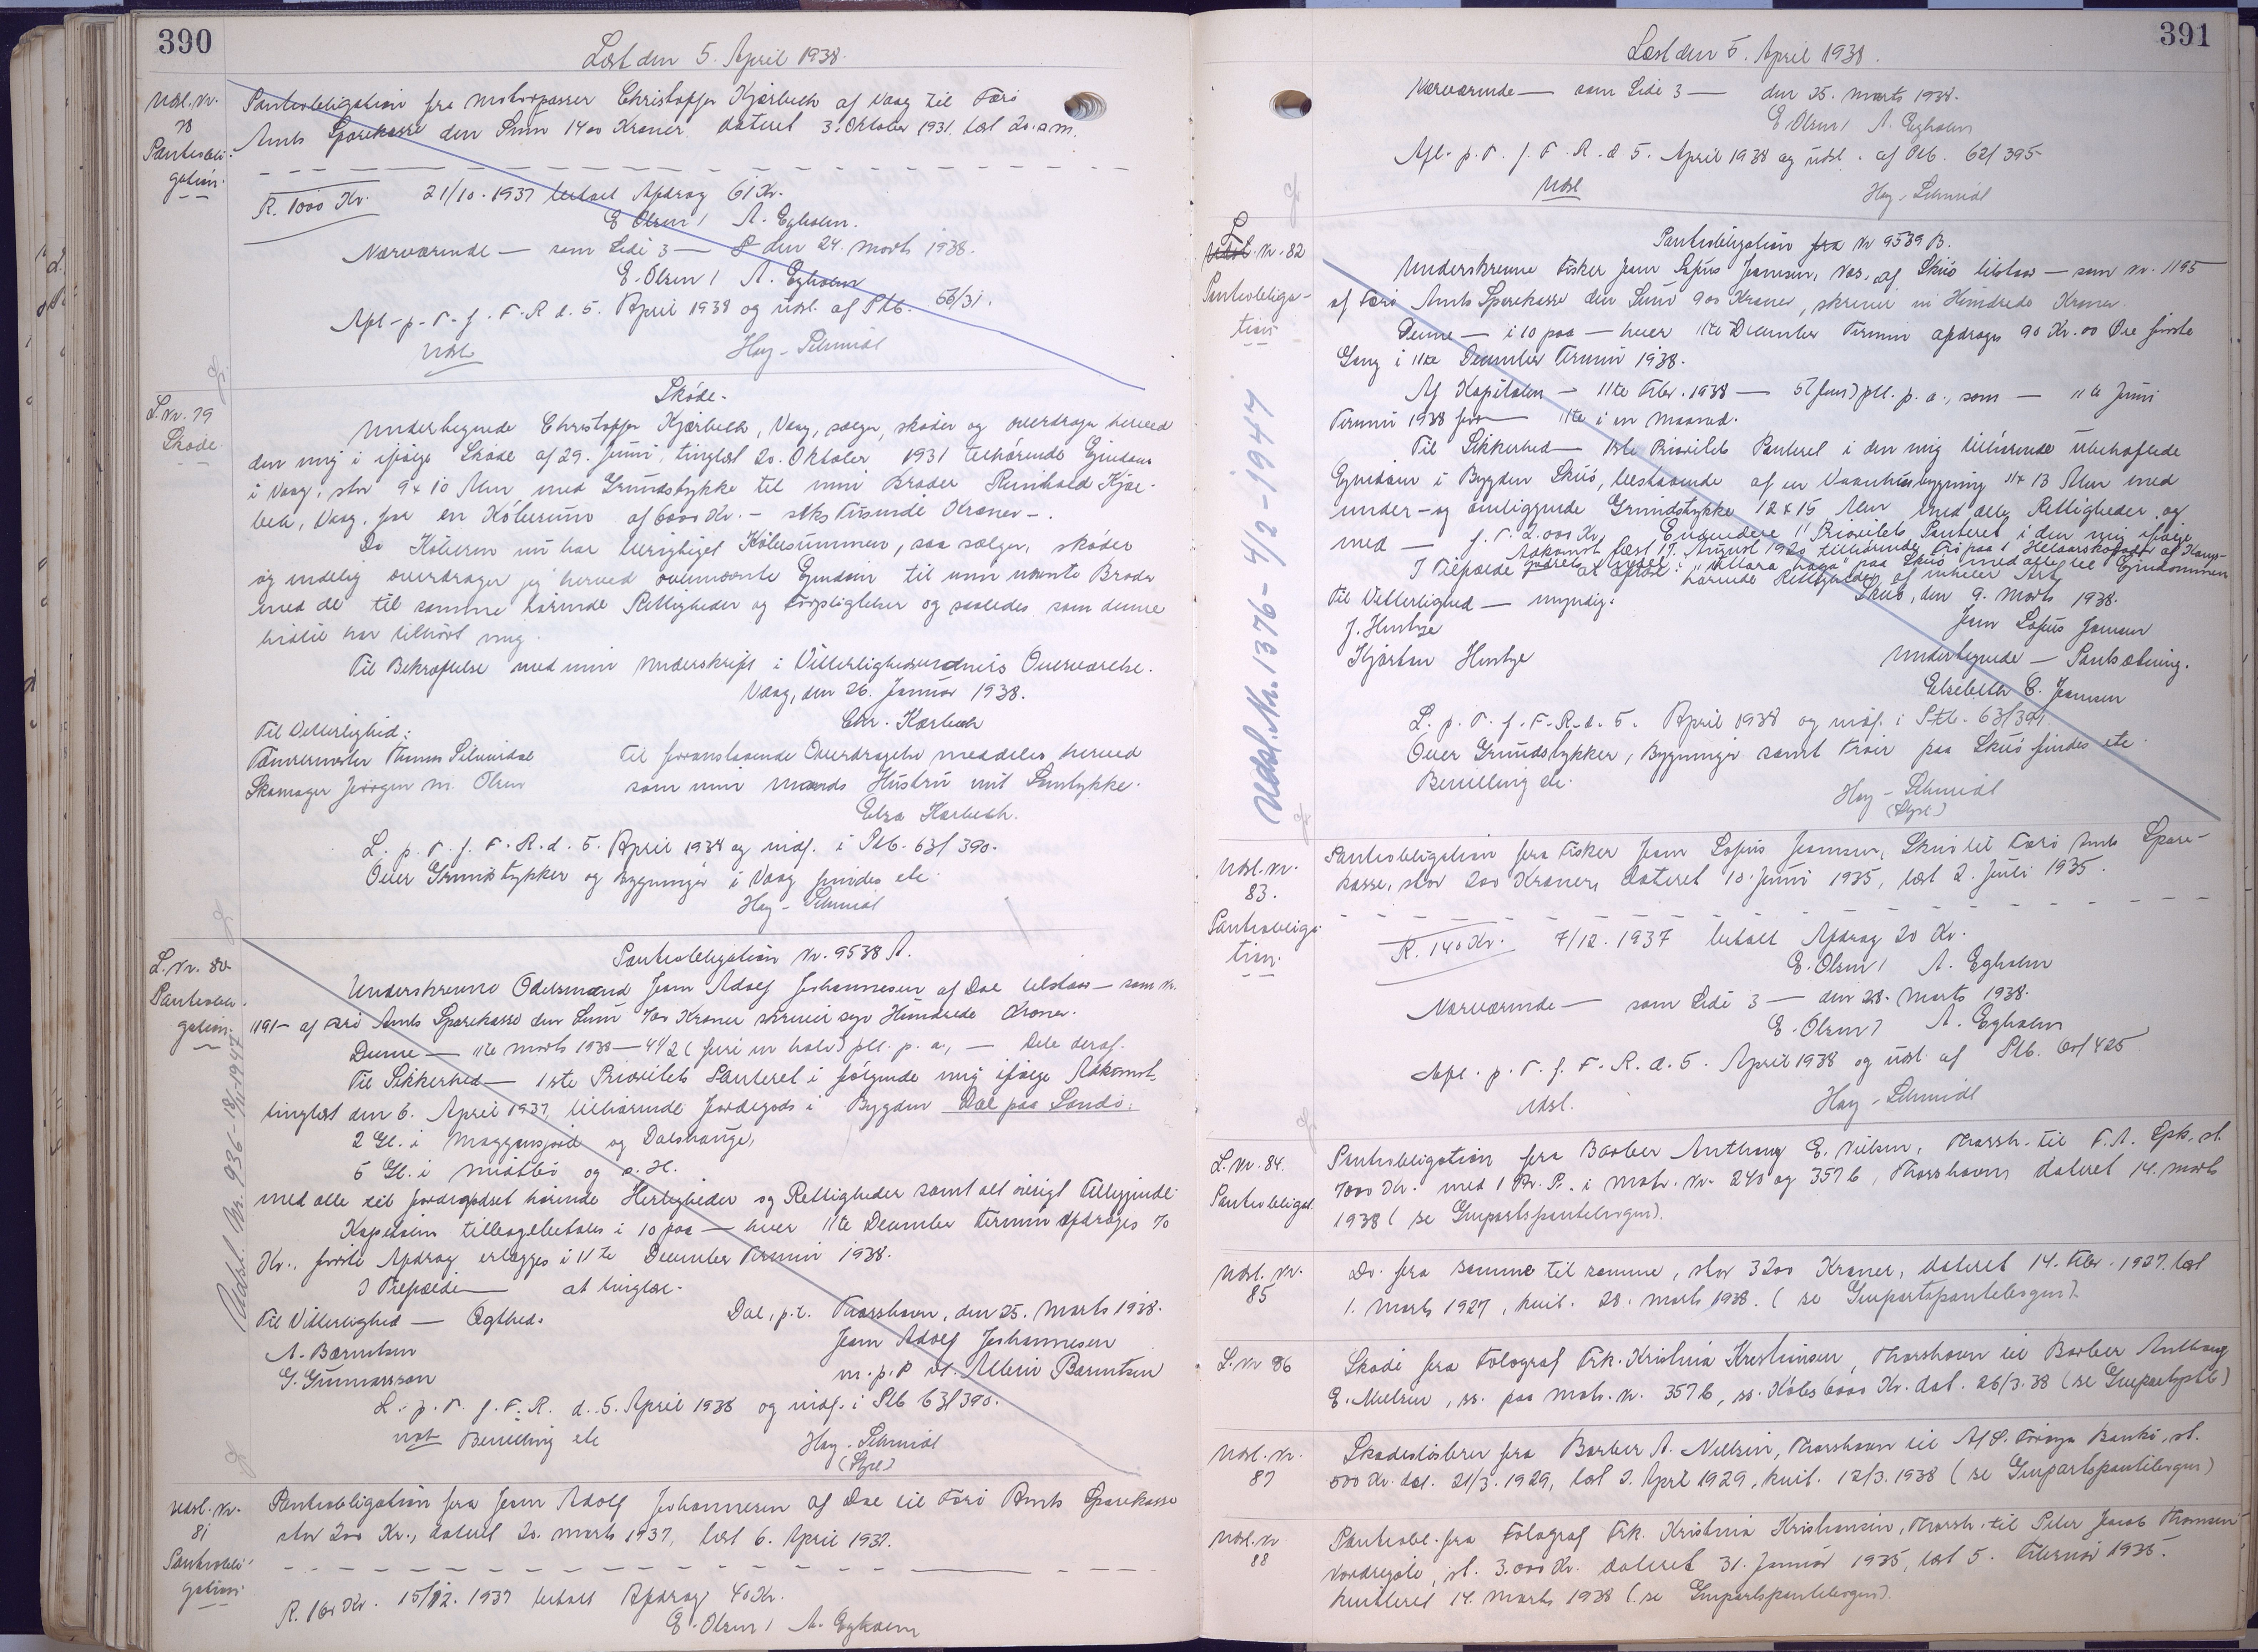 390
Læst den 5. April 1938.
Udsl. Nr. 78 Pantobligation.
Pantobligation fra Motorpasser Christoffer Kjærbech af Vaag til Færö
Amts Sparekasse den Sum 1400 Kroner dateret 3. Oktober 1931. læst 20. s.m.
R. 1000 Kr. 21/10. 1937 betalt Afdrag 61 Kr.
E Olsen / A. Egholm.
Nærværende — som Side 3 — den 24. Marts 1938.
E. Olsen / A. Egholm
Afl. p. T. f. F. R. d. 5. April 1938 og udsl. af Ptb. 56/31.
Udsl. Høy-Schmidt
L. Nr. 79 Skøde
Skøde.
Undertegnede Christoffer Kjærbech, Vaag, sælger, skøder og overdrager herved
den mig i ifølge Skøde af 29. Juni, tinglæst 20. Oktober 1931 tilhørende Ejendom
i Vaag, stor 9 x 10 Alen med Grundstykke til min Broder Reinhold Kjær-
bech, Vaag, for en Købesum af 6000 Kr. - seks Tusinde Kroner -.
Da Køberen nu har berigtiget Købesummen, saa sælger, skøder
og endelig overdrager jeg herved ovennævnte Ejendom til min nævnte Broder
med de til samme hørende Rettigheder og Forpligtelser og saaledes som denne
hidtil har tilhørt mig.
Til Bekræftelse med min Underskrift i Vitterlighedsvidners Overværelse.
Vaag, den 26. Januar 1938.
Chr. Kærbech
Til Vitterlighed:
Tømrermester Thomas
Skomager Jørgen M. Olsen
Til foranstaaende Overdragelse meddeles herved
som min Mands Hustru mit Samtykke.
Elsa Kærbech.
L. p. T. f. F. R. d. 5. April 1938 og indf. i Ptb. 63/390.
Over Grundstykker og Bygninger i Vaag findes ete.
Høy-Schmidt
L. Nr. 80 Pantobligation.
Udsl. Nr. 936 - 18/11-1947
Pantobligation Nr. 9538 A.
Underskrevne Odelsmand Joen Adolf Johannesen af Dal tilstaar — som Nr.
1191 — af Færö Amts Sparekasse den Sum 700 Kroner skriver syv Hundrede Kroner.
Denne — 11te Marts 1938 — 4 1/2 (fire en halv) pCt. p. a., — Dele deraf.
Til Sikkerhed — 1ste Prioritets Panteret i følgende mig ifølge Adkomst,
tinglæst den 6. April 1937, tilhørende Jordegods i Bygden Dal paa Sandö:
2 Gl. i og Dalshauge,
5 Gl. i og s. H.
med alle til Jordegodset hørende Herligheder og Rettigheder samt alt øvrigt Tilliggende
Kapitalen tilbagebetales i 10 paa — hver 11te December Termin afdrages 70
Kr., første Afdrag erlægges i 11te December Termin 1938.
I Tilfælde — at tinglæse.
Til Vitterlighed — Ægthed.
A. Bærentsen
G. Gunnarsson
Dal, p.t. Thorshavn, den 25. Marts 1938.
Joen Adolf Johannesen
m. p. P. v. Bærentsen
L. p. T. f. F. R. d. 5. April 1938 og indf. i Ptb 63/390.
Bevilling ete
Høy-Schmidt
(Stpl)
Udsl. Nr. 81 Pantobligation
Pantobligation fra Joen Adolf Johannesen af Dal til Færö Amts Sparekasse
stor 200 Kr., dateret 20. Marts 1937, læst 6. April 1937.
R. 160 Kr. 15/12. 1937 betalt Afdrag 40 Kr.
E. Olsen / A. Egholm
391
Læst den 5. April 1938.
Nærværende — som Side 3 — den 25. Marts 1938.
E Olsen / A. Egholm
Afl. p. T. f. F. R. d 5. April 1938 og udsl. af Ptb. 62/395
Udsl Høy-Schmidt
L. Nr. 82 Pantobligation
Udsl. Nr. 1376 - 4/2 - 1947
Pantobligation fra Nr 9539 B.
Underskrevne Fisker Joen Sofus Joensen, af Skuö tilstaar — som Nr. 1195
af Færö Amts Sparekasse den Sum 900 Kroner, skriver ni Hundrede Kroner.
Denne — i 10 paa — hver 11te December Termin afdrages 90 Kr. 00 Øre første
Gang i 11te December Termin 1938.
Af Kapitalen — 11te Febr. 1938 — 5 (fem) pCt. p. a., som — 11te Juni
Termin 1938 fra — 11te i en Maaned.
Til Sikkerhed — 1ste Prioritets Panteret i den mig tilhørende ubehæftede
Ejendom i Bygden Skuö, bestaaende af en Vaaningsbygning 11 x 13 Alen med
under- og omliggende Grundstykke 12 x 15 Alen med alle Rettigheder og
med — f. T. 2.000 Kr. Endvidere 1' Prioritets Panteret i den mig ifølge
Adkomst læst 17. August 1920 tilhørende Trö paa
I Tilfælde paa Skuö med alle til Ejendommen
hørende Rettigheder af enhver Art
Til Vitterlighed — myndig:
J. Hentze
Kjartan Hentze
Skuö, den 9. Marts 1938.
Joen Sofus Joensen
Undertegnede — Pantsætning.
Elsebeth C. Joensen
L. p. T. f. F. R. d. 5. April 1938 og indf. i Ptb. 63/391.
Over Grundstykker, Bygninger samt Tröir paa Skuö findes ete.
Bevilling ete.
Høy-Schmidt
(Stpl)
Udsl. Nr. 83. Pantobligation.
Pantobligation fra Fisker Joen Sofus Joensen, Skuö til Færö Amts Spare-
kasse, stor 200 Kroner, dateret 10. Juni 1935, læst 2. Juli 1935.
R. 140 Kr. 7/12. 1937 betalt Afdrag 20 Kr.
E. Olsen / A. Egholm
Nærværende — som Side 3 — den 28. Marts 1938.
E. Olsen / A. Egholm
Afl. p. T. f. F. R. d. 5. April 1938 og udsl. af Ptb. 425
Udsl. Høy-Schmidt
L. Nr. 84. Pantobligat.
Pantobligation fra Barber Anthony E. Nielsen, Thorsh. til F. A. Spk. st.
7000 Kr. med 1 Pr. P. i Matr. Nr. 240 og 357 b, Thorshavn, dateret 14. Marts
1938 (se Grupartspantebogen).
Udsl. Nr. 85
Do. fra samme til samme, stor 3200 Kroner, dateret 14. Febr. 1927. læst
1. Marts 1927, kvit. 28. Marts 1938. (se Grupartspantebogen)
L. Nr 86
Skøde fra Fotograf Frk. Kristina Krestiansen, Thorshavn til Barber Anthony
E. Nielsen, ss. paa Matr. Nr. 357 b, ss. Købes. 6000 Kr. dat. 26/3. 38 (se Grupartsptb)
Udsl. Nr. 87
Skadesløsbrev fra Barber A. Nielsen, Thorshavn til A/S. Föroya Banki, st.
500 Kr. dat. 21/3. 1929, læst 2. April 1929, kvit. 12/3. 1938 (se Grupartspantebogen)
Udsl. Nr 88
Pantobl. fra Fotograf Frk. Kristina Kristiansen, Thorsh. til Peter Jacob Thomsen
Nordregöte, st. 3.000 Kr. dateret 31. Januar 1935, læst 5. Februar 1935.
kvitteret 14. Marts 1938 (se Grupartspantebogen).